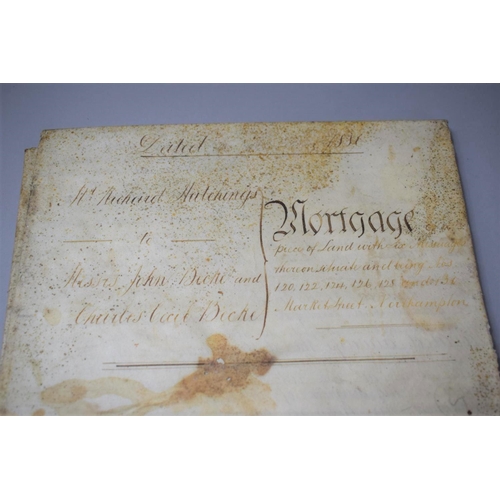 Dated 1881
Mr. Richard Hutchings
to
Messrs John Becke and
Charles Cecil Becke
Mortgage
piece of Land with the
thereon situate and being Nos
120, 122, 124, 126, 128 and 130
Market Street Northampton